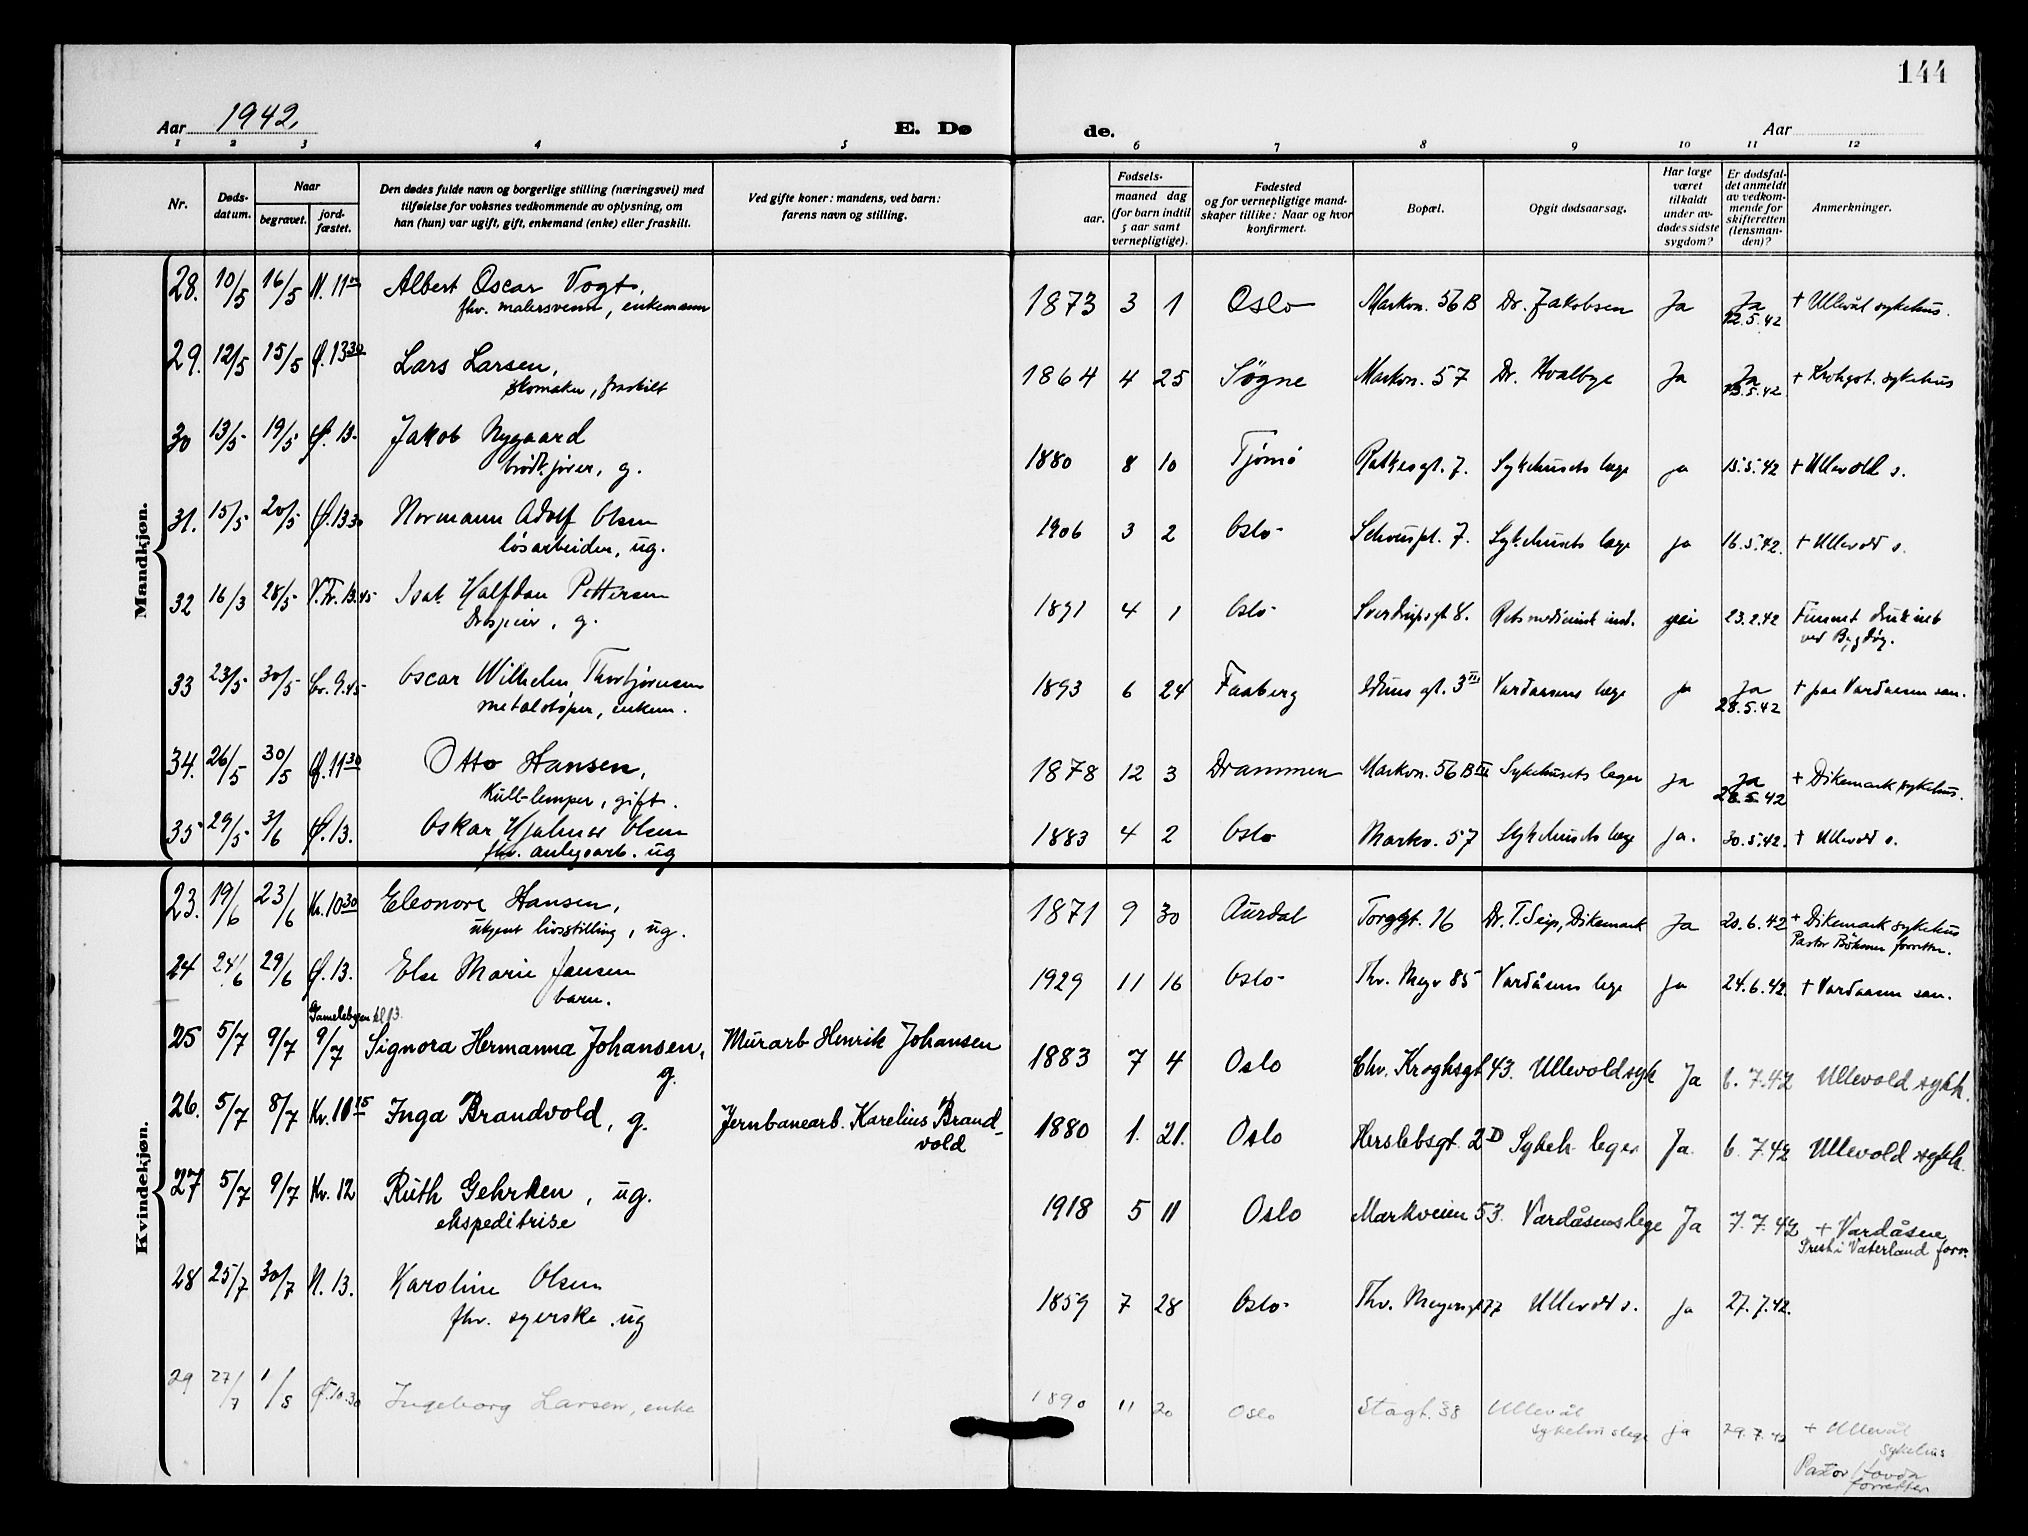 144
Aar 1942.
E. Dø
de.
Aar
1 2 3 4 5 6 7 8 9 10 11 12
Nr.
Døds-
datum.
Naar
begravet.
jord-
fæstet.
Den dødes fulde navn og borgerlige stilling (næringsvei) med
tilføielse for voksnes vedkommende av oplysning, om
han (hun) var ugift, gift, enkemand (enke) eller fraskilt.
Ved gifte koner: mandens, ved barn:
farens navn og stilling.
Fødsels-
aar.
maaned dag
(for barn indtil
5 aar samt
vernepligtige).
Fødested
og for vernepligtige mand-
skaper tillike: Naar og hvor
konfirmert.
Bopæl.
Opgit dødsaarsag.
Har læge
været
tilkaldt
under av-
dødes sidste
sygdom?
Er dødsfal-
det anmeldt
av vedkom-
mende for
skifteretten
(lensman-
den)?
Anmerkninger.
Mandkjøn.
28. 10/5 16/5 N. 11 Albert Oscar Vogt, 1873 3 1 Oslo Markvn. 56 B Dr. Jakobsen Ja Ja + Ullevål sykehus.
fhv. malersvenn, enkemann 12.5.42
29. 12/5 15/5 Ø. 13 30 Lars Larsen, 1864 4 25 Søgne Markvn. 57 Dr. Hvalbye Ja Ja + Krohgst. sykehus
skomaker, fraskilt 13.5.42
30 13/5 19/5 Ø. 13. Jakob Nygaard 1880 8 10 Tjømø Ratkesgt. 7. Sykehusets læge ja 15.5.42 + Ullevold s.
brødkjører, g.
31. 15/5 20/5 Ø. 13 30 Normann Adolf Olsen 1906 3 2 Oslo Schouspl. 7. Sykehusets læge ja 16.5.42. + Ullevold s.
løsarbeider, ug.
32 16/3 28/5 V.Kr. 13.45 Isak Halfdan Pettersen 1891 4 1 Oslo Sverdrupsgt 8. Retsmedicinsk inst. nei 23.2.42 Funnet druknet
Drosjeeier, g. ved Bygdøy.
33 23/5 30/5 Cr. 9.45 Oscar Wilhelm Thorbjørnsen 1893 6 24 Faaberg Iduns gt. 3 III Vardaasens læge ja Ja + paa Vardaasen san.
metalstøper, enkem. 28.5.42
34. 26/5 30/5 Ø. 11 30 Otto Hansen, 1878 12 3 Drammen Markvn. 56 B III Sykehusets leger ja Ja + Dikemark sykehus.
kull-lemper, gift. 28.5.42
35 29/5 3/6 Ø. 13. Oskar Hjalmar Olsen 1883 4 2 Oslo Markv. 57 Sykehusets læge ja. 30.5.42. + Ullevold s.
fhv. anlegsarb. ug
Kvindekjøn.
23. 19/6 23/6 Kr. 10 30 Eleonore Hansen, 1871 9 30 Aurdal Torggt. 16 Dr. T. Seip, Dikemark Ja 20.6.42 + Dikemark sykehus
ukjent livsstilling, ug. Pastor Bøhmer forretter.
24 24/6 29/6 Ø. 13. Else Marie Jansen 1929 11 16 Oslo Thv. Meyr 85 Vardåsens lege Ja 24.6.42. + Vardaasen san.
barn.
Gamlebyen kl 13.
25 5/7 9/7 9/7 Signora Hermanna Johansen, Murarb Henrik Johansen 1883 7 4 Oslo Chr. Kroghsgt 43. Ullevold syk Ja 6.7.42 Ullevold sykh.
g.
26. 5/7 8/7 Kr. 10 15 Inga Brandvold, g. Jernbanearb. Karelius Brand- 1880 1. 21. Oslo Herslebsgt. 2 D Sykeh leger Ja. 6.7.42 Ullevold sykh.
vold
27 5/7 9/7 Kr. 12 Ruth Gehrken, ug. 1918 5 11 Oslo Markveien 53. Vardåsens lege Ja 7.7.42 + Vardåsen
ekspeditrise Prest i Vaterland forr.
28 25/7 30/7 N. 13. Karoline Olsen 1859 7 28 Oslo Thv. Meyersgt 77 Ullevold s. ja 27.7.42.
fhv. syerske. ug
29 27/7 1/8 Ø. 10.30 Ingeborg Larsen, enke 1890 11 20 Oslo Stogt. 38 Ullevål ja 29.7.42 + Ullevål
sykehus lege sykehus
Pastor Hovda
forretter